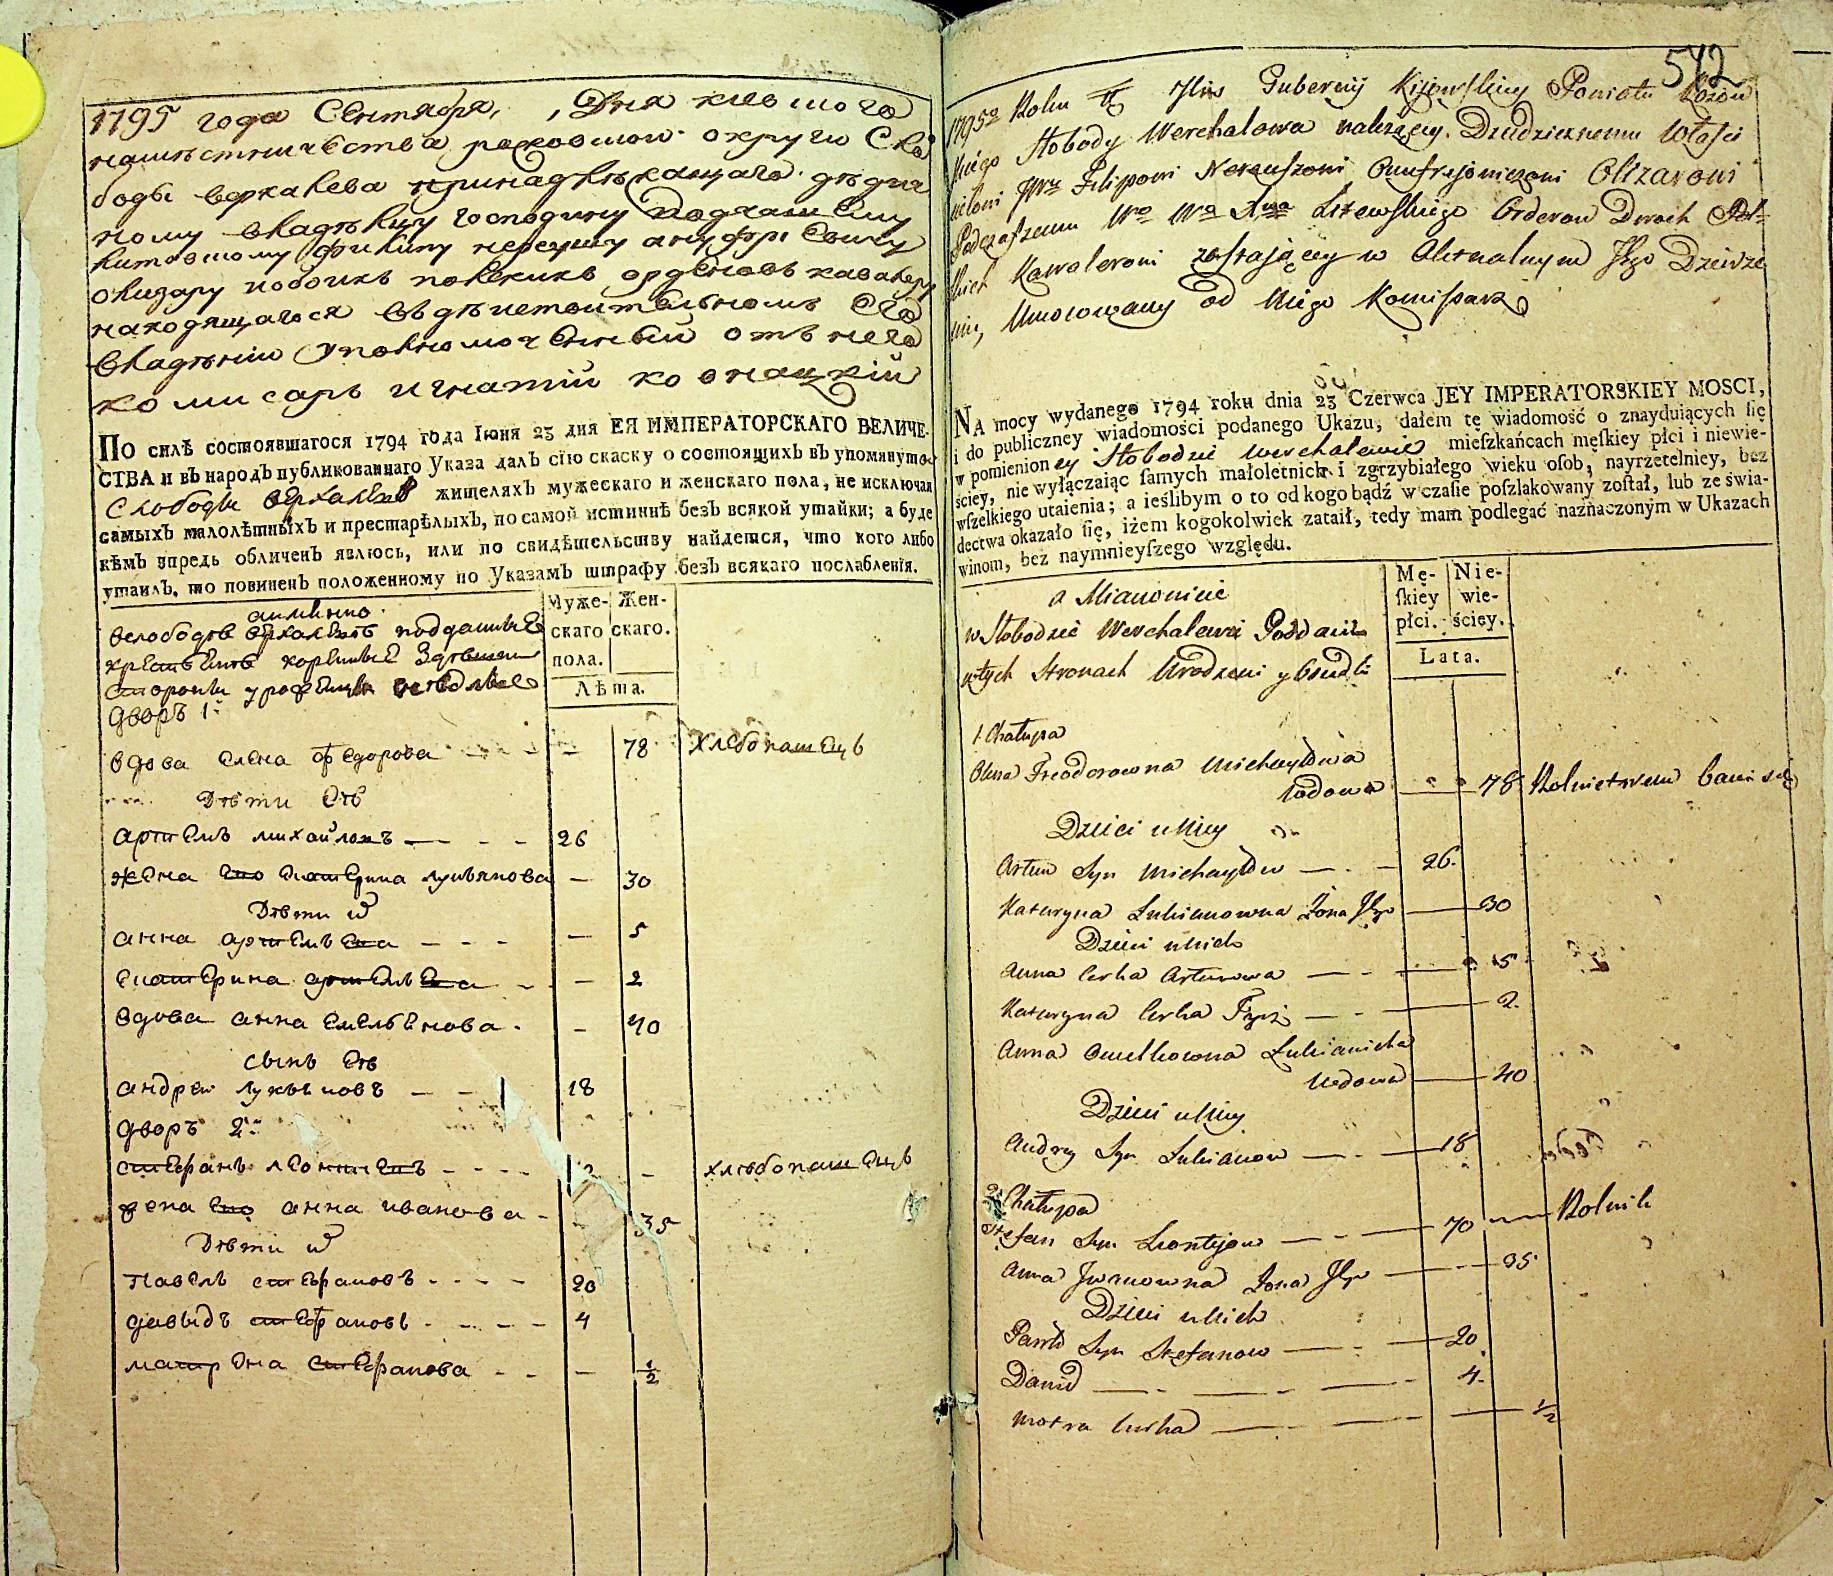 1795 года Сентября, , Дня киевского
намѣстничества округи Сло
боды верхалева принадлѣжащаго дѣдич
ному владѣлцу господину Подчашему
литовскому филипу нереушу ануфріевичу
олизару полскихъ ордѣновъ кавалеру
находящагося въ дѣйствительномъ Его
владѣніи уполномоченный отъ него
комисаръ игнатій
ПО силѣ состоявшагося 1794 года Іюня 23 дня ЕЯ ИМПЕРАТОРСКАГО ВЕЛИЧЕ-
СТВА и въ народъ публикованнаго Указа далъ сію скаску о состоящихъ въ упомянутой
слободы верхалевъ жителяхъ мужескаго и женскаго пола, не исключая
самыхъ малолѣтныхъ и престарѣлыхъ, по самой истиннѣ безъ всякой утайки; а буде
кѣмъ впредь обличенъ явлюсь, или по свидѣтельству найдется, что кого либо
утаилъ, то повиненъ положенному по Указамъ штрафу безъ всякаго послабленія.
аименно
вслободѣ верхалевѣ подданные
крестьянѣ коренные Здешнеи
стороны урожденцы
Муже- Жен-
скаго скаго.
пола.
Лѣта.
дворъ 1й
вдова елена федорова - - - 78 хлебопашецъ
Дѣти Еѣ
артемъ михайловъ - - - 26
жена его екатерина лукьянова - 30
Дѣти ихъ
анна артемьева - - - 5
екатерина артемьева - - 2
вдова анна емельянова - - 40
сынъ еѣ
андреи лукьяновъ - - 18
дворъ 2й
стефанъ леонтиевъ - - - - - хлѣбопашецъ
жена его анна иванова - - 35
Дѣти ихъ
павелъ стефановъ - - - - 20
давыдъ стефановъ - - - - 4
матрена стефанова - - - ½
542
1795o Roku Gubernij Kijowskiey Powiatu
Słobody Werchalowa należącey Dziedzicznemu
Filipowi Nereuszowi Onufryjowiczowi Olizarowi
Podczaszemu Wo Wo Xwa Litewskiego Orderow Dwoch Pol-
skich Kawalerowi zostającey w Aktualnym Jego Dzierże
niu, Umocowany od Niego Komissarz
NA mocy wydanego 1794 roku dnia 23 Czerwca JEY IMPERATORSKIEY MOSCI,
i do publiczney wiadomości podanego Ukazu, dałem tę wiadomość o znayduiących się
w pomienioney Słobodzie Werchalewie mieszkańcach męskiey płci i niewie-
ściey, nie wyłączaiąc samych małoletnich i zgrzybiałego wieku osob, nayrzetelniey, bez
wszelkiego utaienia; a ieślibym o to od kogo bądź w czasie poszlakowany został, lub ze świa-
dectwa okazało się, iżem kogokolwiek zataił, tedy mam podlegać naznaczonym w Ukazach
winom, bez naymnieyszego względu.
a Mianowicie
w Słobodzie Werchalewie Poddani
w tych Stronach Urodzeni y Osiedli
Mę- Nie-
skiey wie-
płci. ściey.
Lata.
1 Chałupa
Olena Theodorowna Michayłowa
Wdowa - - 78 Rolnictwem bawi się
Dzieci u Niey
Artem Syn Michayłow - - - 26.
Kateryna Lukianowna Żona Jego - 30
Dzieci u Nich
Anna Corka Artemowa - - - 5
Kateryna Corka Tychże - - - 2.
Anna Omelkowna Lukianicha
Wdowa - 40
Dzieci u Niey
Andrey Syn Lukianow - - 18
2 Chałupa
Stefan Syn Leontyow - - - 70 - Rolnik
Anna Iwanowna Żona Jego - - 35
Dzieci u Nich
Pawło Syn Stefanow - - - 20.
Dawid - - - - 4.
Motra Corka - - - ½